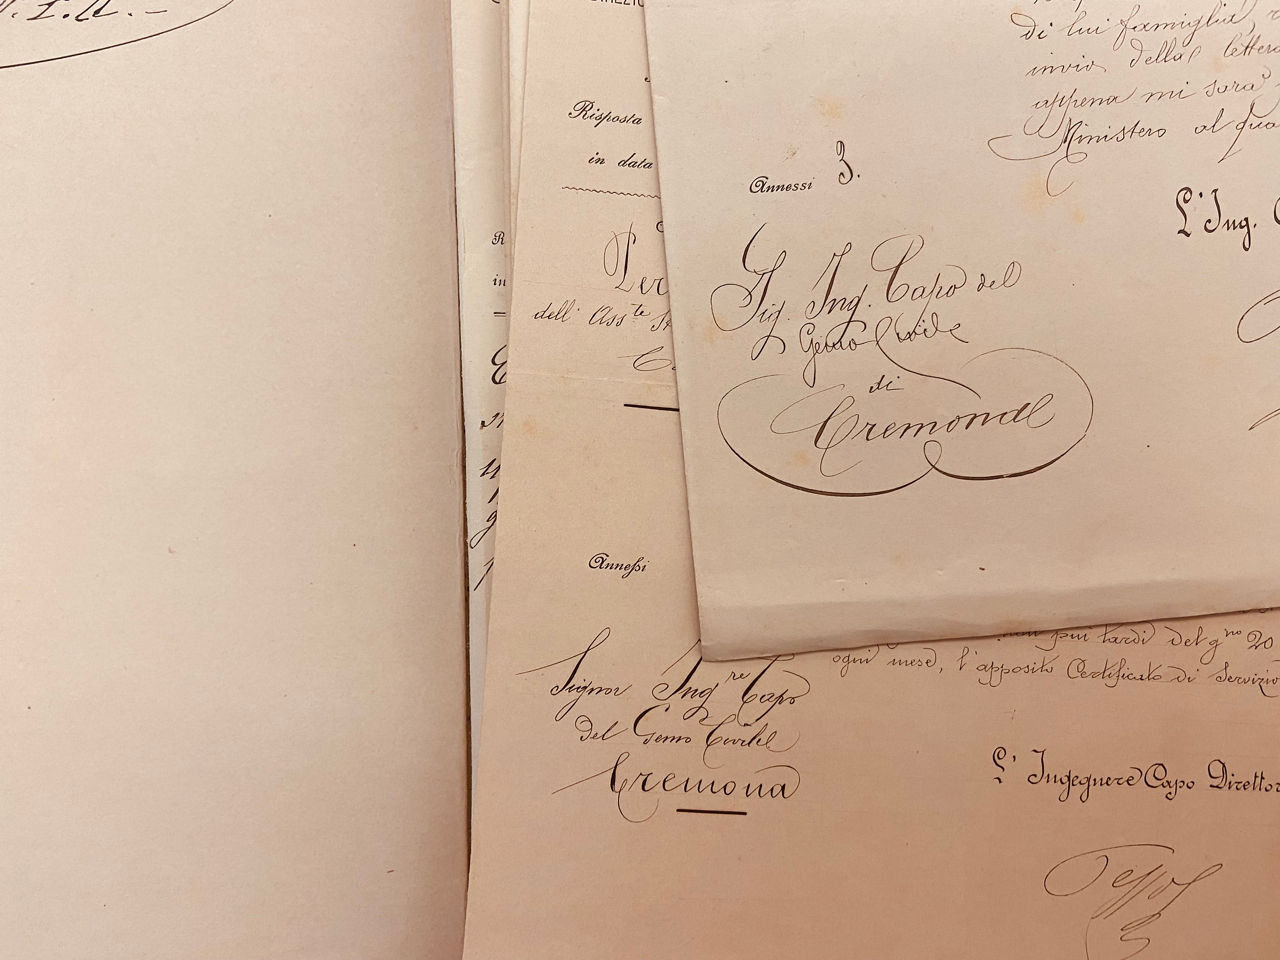 di lui famiglia,
invio della lettera
appena mi sarà
Ministero al qua
Annessi 3.
L'Ing.
Sig. Ing. Capo del
Genio Civile
di
Cremona
Risposta
in data
Per
dell' Ass.te
Annessi
Signor Ing.re Capo
del Genio Civile
Cremona
non più tardi del g.no 20
ogni mese, l'apposito Certificato di Servizio
L' Ingegnere Capo Direttor